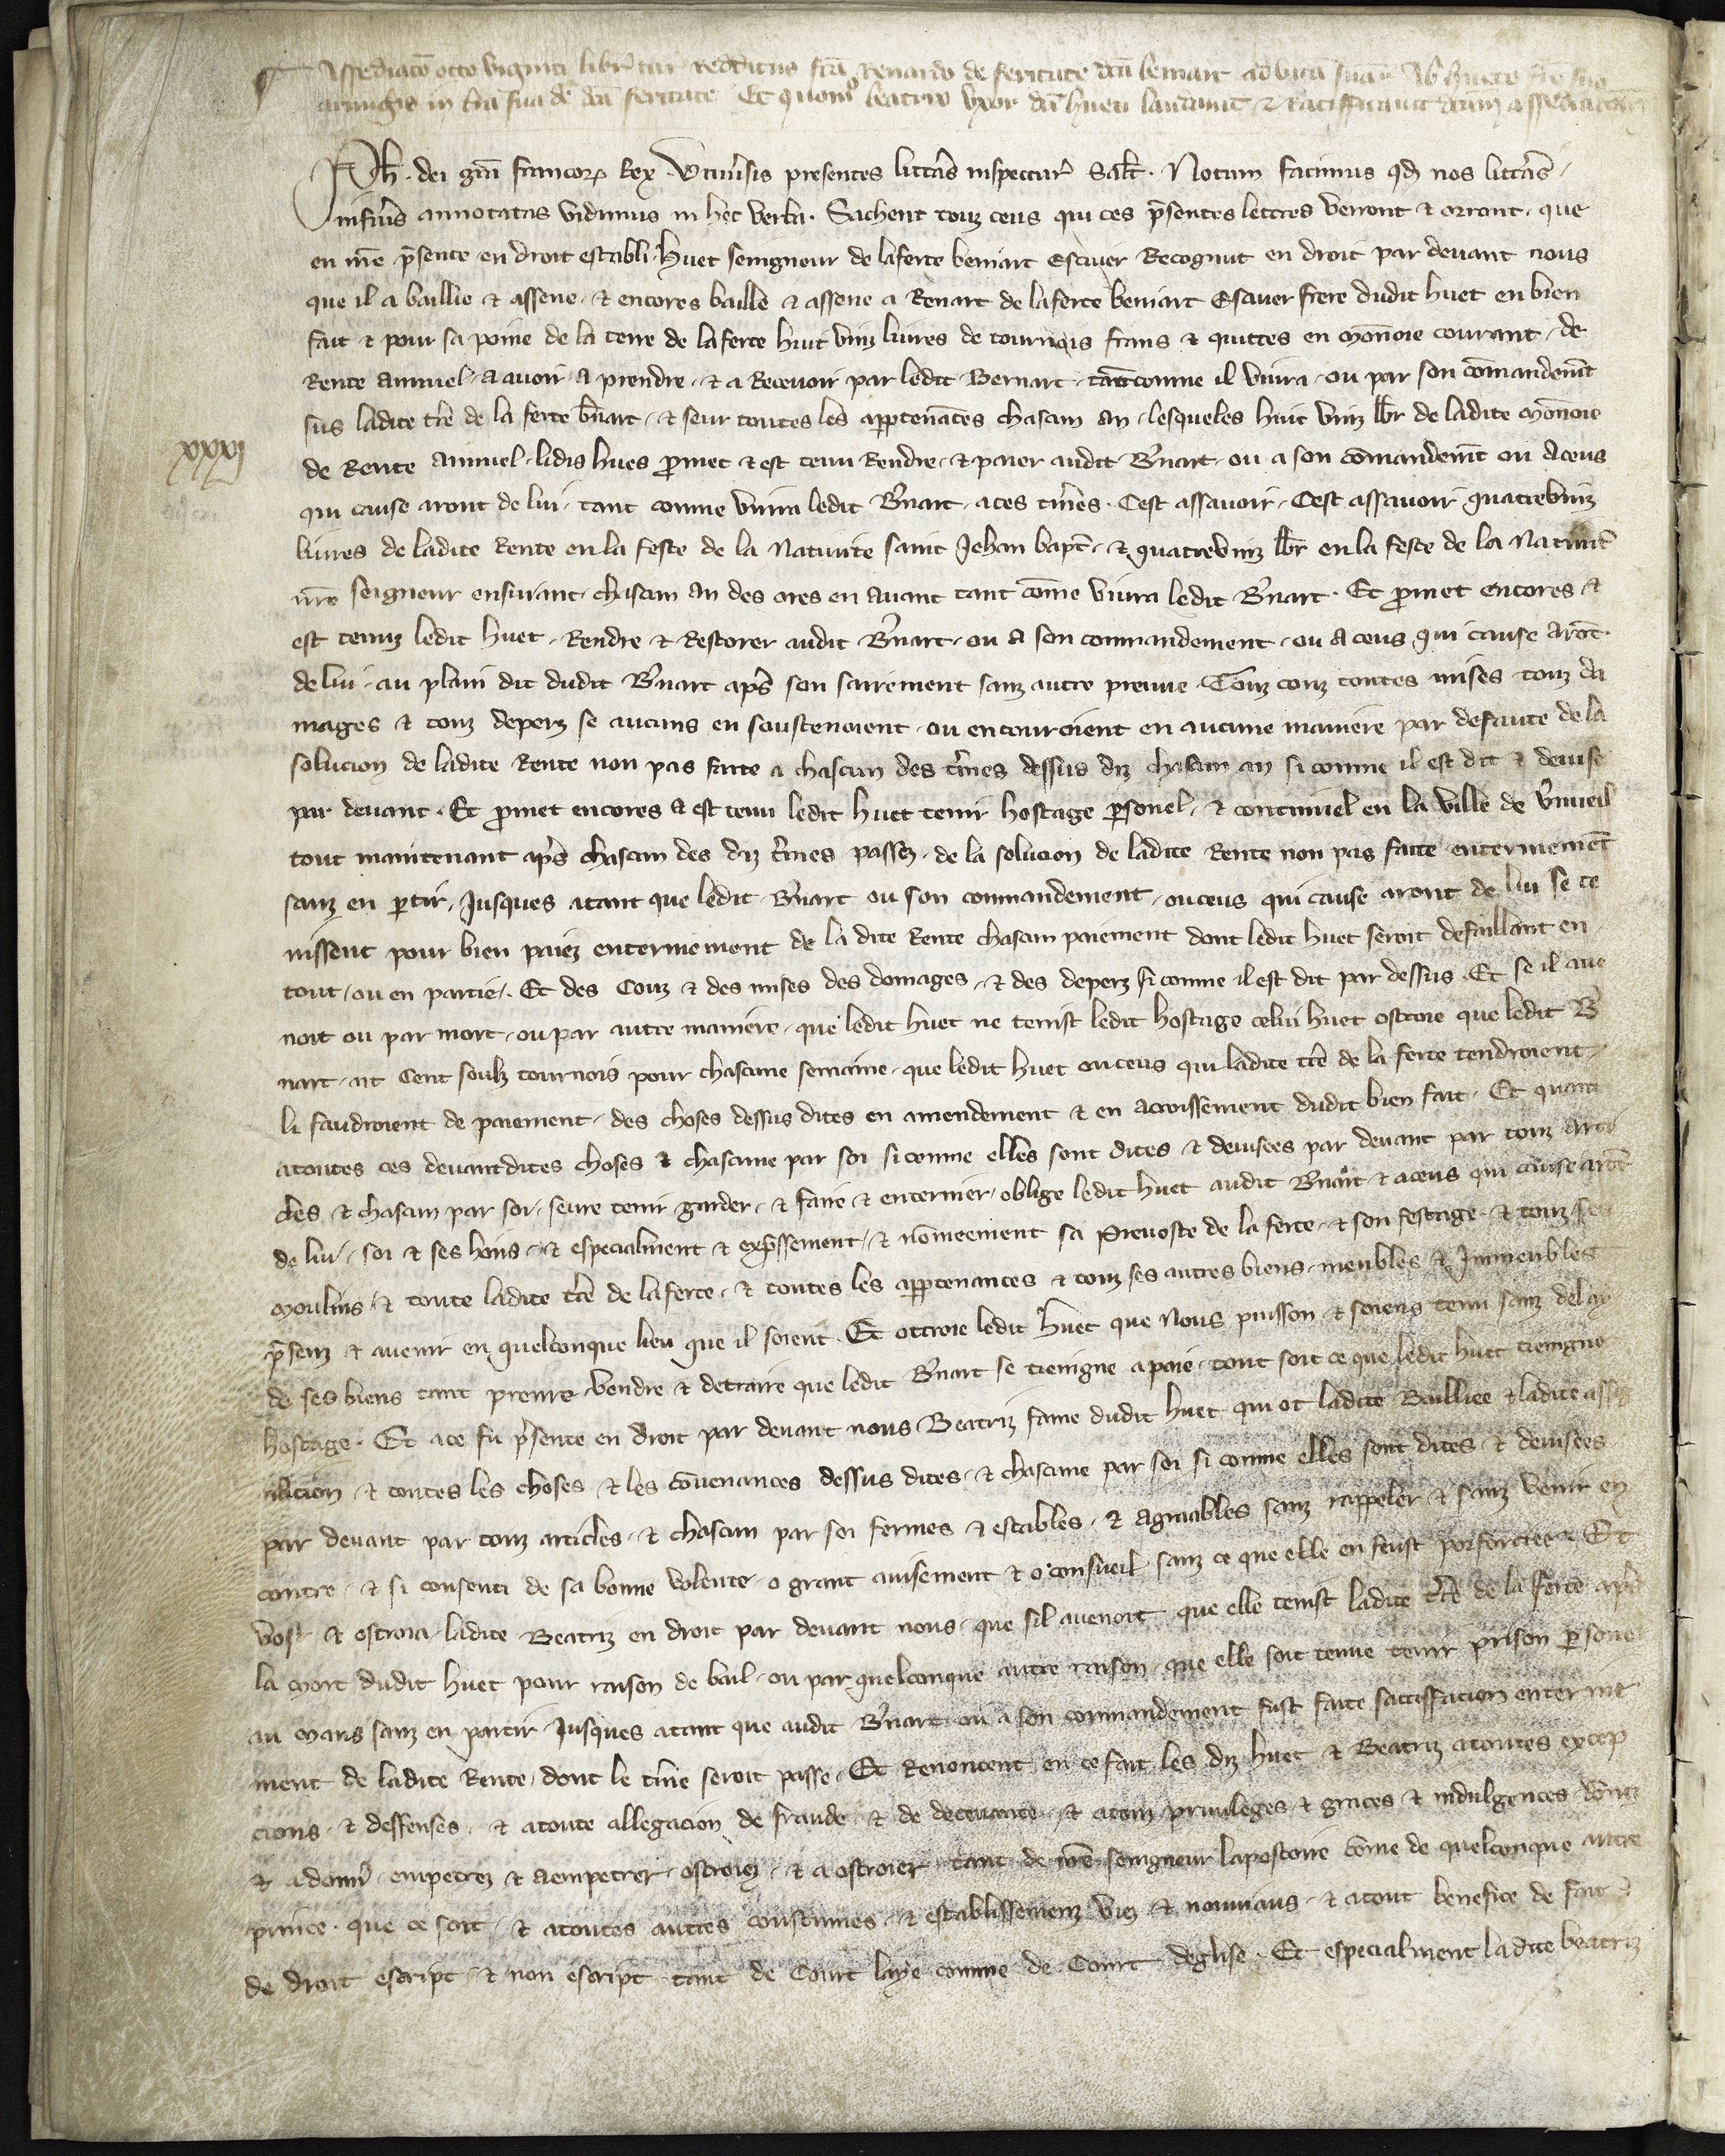 Assediatõ octo viginti librar tur redditus scã Renardo de feritate dñi bernart ad vitã suã ab hueto fr̃e suo
armig̃is in t̃ra sua de dñi feritate Et quomo beatrix vxor dc̃i hueti laudauit & ratifficauit dcãm assediatõem
Ph̃. dei grã francoꝝ Rex. Vniũsis presentes litt̃as inspectur̃ Salt̃. Notum facimus qd̃ nos litt̃as
infrãs annotatas vidimus in hec verba. Sachent touz ceus qui ces p̃sentes lettres verront & orront. que
en nr̃e p̃sence en droit establi huet seingneur de laferte bernart Escuier Recognut en droit par deuant nous
que il a baillie & assene. & encores baille & assene a Renart de laferte bernart Escuier frere dudit huet en bien
fait & pour sa poine de la terre de laferte huit vinz liures de tournois frans & quittes en mõnoie courant. de
Rente annuel. a auoir a prendre. & a Receuoir par ledit Bernart. tantcomme il viura. ou par son cõmandem̃t
sus ladite tr̃e de la ferte b̃nart. & seur toutes les apptenãces chascun an. lesqueles huit vinz lbr̃ de ladite mõnoie
xxxj
de Rente annuel. lidis hues p̃met & est tenu Rendre. & paier audit B̃nart. ou a son cõmandem̃t ou aceus
qui cause aront de lui. tant comme viura ledit B̃nart. aces t̃mes. Cest assauoir. Cest assauoir quatrevinz
liures de ladite Rente enla feste de la Natiuite saint Jehan bapt̃. & quatrevinz lbr̃ en la feste de la Natiuit̃
nr̃e seigneur ensuiuant. chascun an des ores en auant tant cõme viura ledit B̃nart. Et p̃met encores &
est tenuz ledit huet. Rendre & Restorer audit B̃nart. ou a son commandement. ou aceus qui cause arõt.
de lui. au plain dit dudit B̃nart ap̃s son sairement sanz autre preuue. Touz couz toutes mises touz da
mages & touz deperz se aucuns en soustenoient. ou encouroient en aucune maniere par defaute de la
solucion de ladite Rente non pas faite a chascun des t̃mes dessus diz chascun an si comme il est dit & deuise
par deuant. Et p̃met encores & est tenu ledit huet tenir hostage p̃sonel. & continuel en la ville de ṽnueil
tout maintenant ap̃s chascun des diz t̃mes passez. de la solucion de ladite Rente non pas faite enterinemẽt
sanz en p̃tir. Jusques atant que ledit B̃nart ou son commandement. ouceus qui cause aront de lui se te
nissent pour bien paiez enterinement de la dite Rente chascun paiement dont ledit huet seroit defaillant en
tout. ou en partie. Et des Couz & des mises des domages. & des deperz si comme il est dit par dessus. Et se il aue
noit ou par mort. ou par autre maniere. que ledit huet ne tenist ledit hostage celui huet ostroie que ledit B̃
nart. ait Cent soulz tournois pour chascune semaine. que ledit huet ouceus qui ladite tr̃e de la ferte tendroient
li faudroient de paiement. des choses dessus dites en amendement & en acroissement dudit bien fait. Et quant
atoutes ces deuantdites choses & chascune par soi si comme elles sont dites & deuisees par deuant par touz arti
cles & chascun par soi. seure tenir garder. & faire & enteriner. oblige ledit huet audit B̃nart & aceus qui cause arõt
de lui. soi & ses hoirs. & especialment & exp̃ssement. & nõmeement sa Preuoste de la ferte. & son festage. & touz ses
moulins & toute ladite tr̃e de laferte. & toutes les apptenances & touz ses autres biens. meubles & Jmmeubles
p̃senz & auenir en quelconque lieu que il soient. Et ottroie ledit huet que Nous puisson & soiens tenu sanz delay
de ses biens tant prenre vendre & detraire que ledit B̃nart se tieingne apaie. tout soit ce que ledit huet tieingne
hostage. Et ace fu p̃sente en droit par deuant nous Beatriz fame dudit huet qui ot ladite Bailliee & ladite assi
nacion & toutes les choses & les cõuenances dessus dites. & chascune par soi si comme elles sont dites & deuisees
par deuant par touz articles. & chascun par soi fermes & estables. & agraables sanz rappeler & sanz venir en
contre. & si consenti de sa bonne volente. o grant auisement & o consueil sanz ce que elle en feust porforciee. Et
volt & ostroia ladite Beatriz en droit par deuant nous. que sil auenoit que elle tenist ladite tr̃e de la ferte ap̃s
la mort dudit huet pour raison de bail. ou par quelconque autre raison. que elle soit tenue tenir prison p̃sonel
au mans sanz en partir Jusques atant que audit B̃nart ou a son commandement fust faite satisfacion enterine
ment de ladite Rente. dont le t̃me seroit passe. Et Renoncent en ce fait les diz huet & Beatriz atoutes excep
cions. & deffenses. & atoute allegacion de fraude. & de deceuance. & atouz priuileges & graces & indulgences dõnez
& adonn̄. empetrez & aempetrer. ostroiez. & a ostroier tant de nr̃e seingneur lapostoire cõme de quelconque autre
prince. que ce soit. & atoutes autres coustumes. & establissemenz viez & nouuiaus. & atout benefice de fait &
de droit escript. & non escript. tant de Court laye comme de Court deglise. Et especialment ladite beatriz